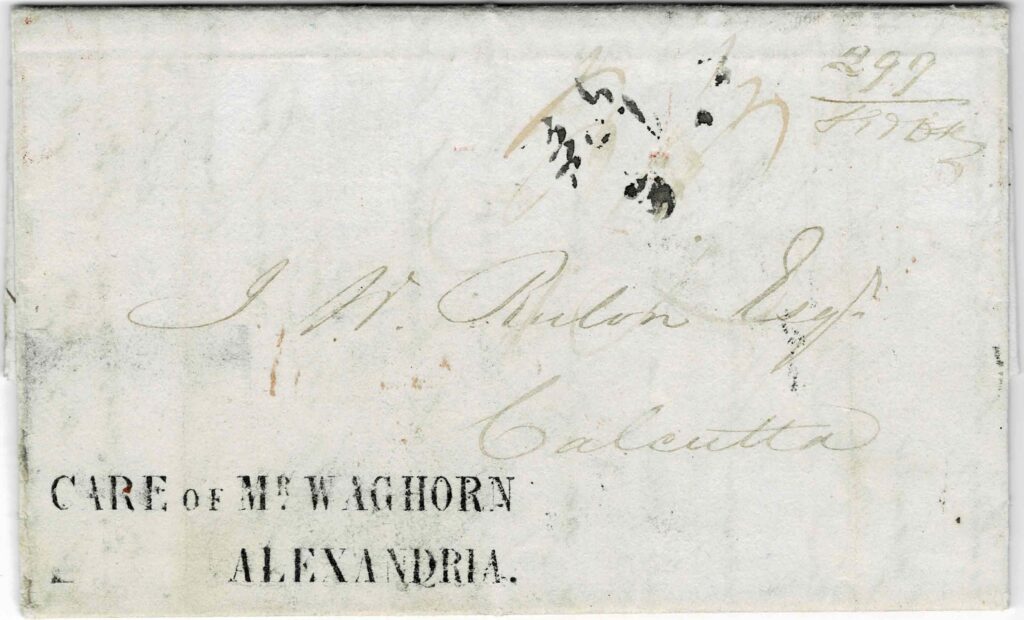 299
J. W. Rulon Esqr.
Calcutta
CARE OF MR. WAGHORN
ALEXANDRIA.